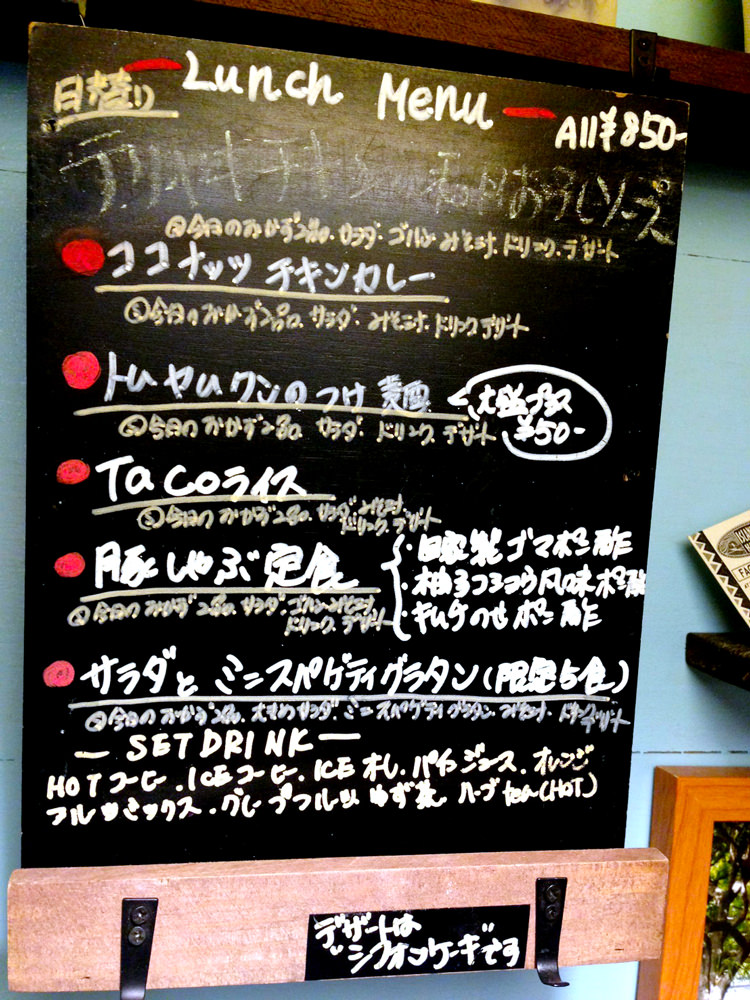 Lunch Menu
日替り
All¥850-
チキン 和風おろしソース
今日のおかず2品、サラダ、ゴハン、みそ汁、ドリンク、デザート
ココナッツ チキンカレー
今日のおかず2品、サラダ、みそ汁、ドリンク デザート
トムヤムクンのつけ麺
大盛プラス
¥50-
今日のおかず2品、サラダ、ドリンク、デザート
Tacoライス
今日のおかず2品、サラダ、みそ汁、
ドリンク、デザート
豚しゃぶ定食
・自家製ゴマポン酢
・柚子コショウ風味ポン酢
・キムチのせポン酢
今日のおかず2品、サラダ、ゴハン、みそ汁、
ドリンク、デザート
サラダと ミニスパゲティグラタン(限定5食)
今日のおかず2品、大きめサラダ、ミニスパゲティグラタン、みそ汁、ドリンク、デザート
— SET DRINK —
HOTコーヒー、ICEコーヒー、ICEオレ、パインジュース、オレンジ
フルーツミックス、グレープフルーツ ゆず茶、ハーブtea(HOT)
デザートは
シフォンケーキです